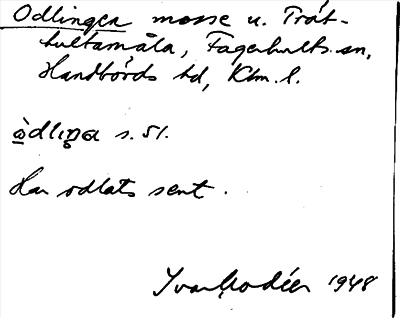 Odlingen mosse u. Tröt-
hultamåla, Fagerhults sn,
Handbörds hd, Klm. l.
òdlıŋa s. 51.
Har odlats sent.
Ivar Modéer 1948